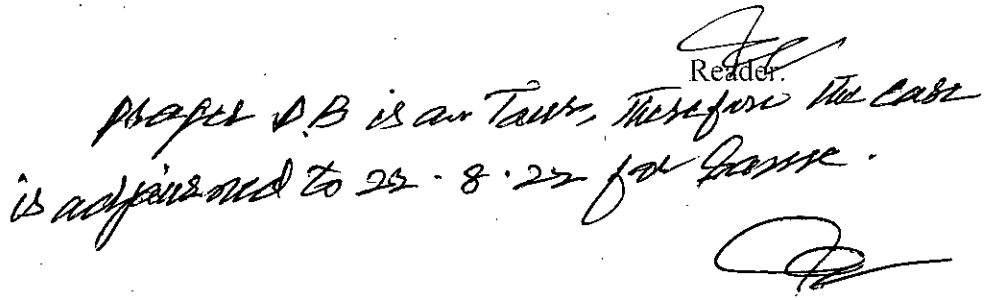 Reader.
proper D.B is on Tour, therefore the case
is adjourned to 22.8.22 for Same.